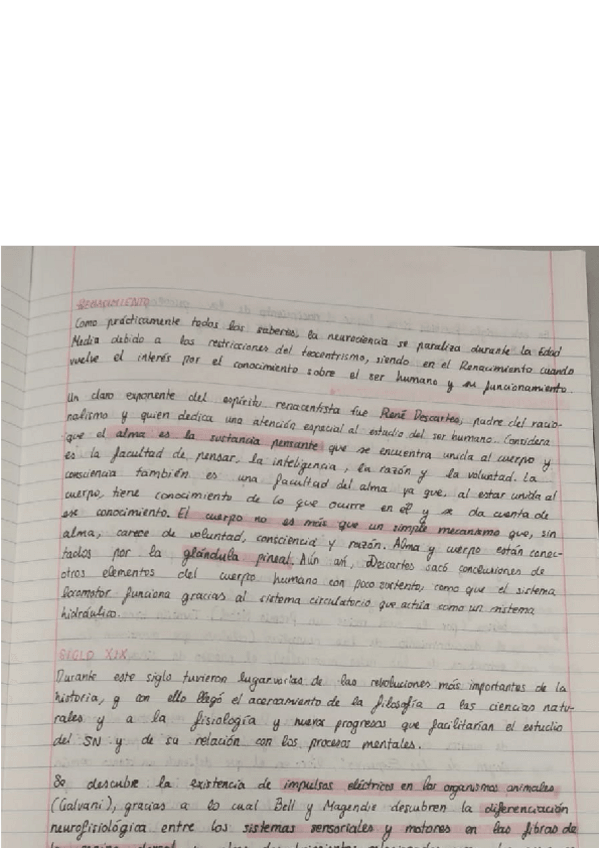 RENACIMIENTO
Como prácticamente todos los saberes, la neurociencia se paraliza durante la Edad
Media debido a las restricciones del teocentrismo, siendo en el Renacimiento cuando
vuelve el interés por el conocimiento sobre el ser humano y su funcionamiento.
Un claro exponente del espíritu renacentista fue René Descartes, padre del racio-
nalismo y quien dedica una atención especial al estudio del ser humano. Considera
que el alma es la sustancia pensante que se encuentra unida al cuerpo y
es la facultad de pensar, la inteligencia, la razón y la voluntad. La
consciencia también es una facultad del alma ya que, al estar unida al
cuerpo, tiene conocimiento de lo que ocurre en él y se da cuenta de
ese conocimiento. El cuerpo no es más que un simple mecanismo que, sin
alma, carece de voluntad, consciencia y razón. Alma y cuerpo están conec-
tados por la glándula pineal. Aún así, Descartes sacó conclusiones de
otros elementos del cuerpo humano con poco sustento, como que el sistema
locomotor funciona gracias al sistema circulatorio que actúa como un sistema
hidráulico.
SIGLO XIX
Durante este siglo tuvieron lugar varias de las revoluciones más importantes de la
historia, y con ello llegó el acercamiento de la filosofía a las ciencias natu-
rales y a la fisiología y nuevos progresos que facilitarían el estudio
del SN y de su relación con los procesos mentales.
Se descubre la existencia de impulsos eléctricos en los organismos animales
(Galvani), gracias a lo cual Bell y Magendie descubren la diferenciación
neurofisiológica entre los sistemas sensoriales y motores en las fibras de